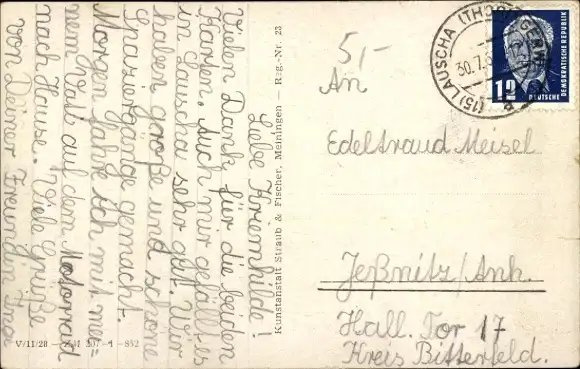 Liebe Kriemhilde!
Vielen Dank für die beiden
Karten. Auch mir gefällt es
in Lauscha sehr gut. Wir
haben große und schöne
Spaziergänge gemacht.
Morgen fahre ich mit mei=
nem Vati auf dem Motorrad
nach Hause. Viele Grüße
von Deiner Freundin Inge
V/11/28 — 852
Kunstanstalt Straub & Fischer, Meiningen — Reg.-Nr. 23
5,-
(15) LAUSCHA (THÜRINGER
30.7.5
DEUTSCHE
DEMOKRATISCHE REPUBLIK
12
DEUTSCHE
An
Edeltraud Meisel
Jeßnitz/Anh.
Hall. Tor 17
Kreis Bitterfeld.